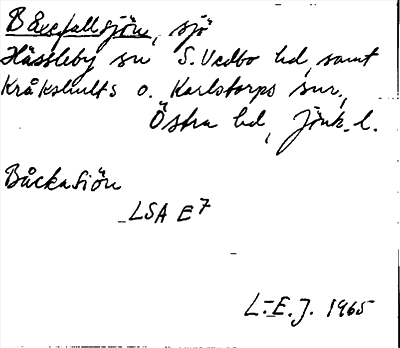 Båxefallsjön, sjö
Hässleby sn S. Vedbo hd, samt
Kråkshults o. Karlstorps snr,
Östra hd, Jönk. l.
Båckasiön
LSA E7
L.E.J. 1965